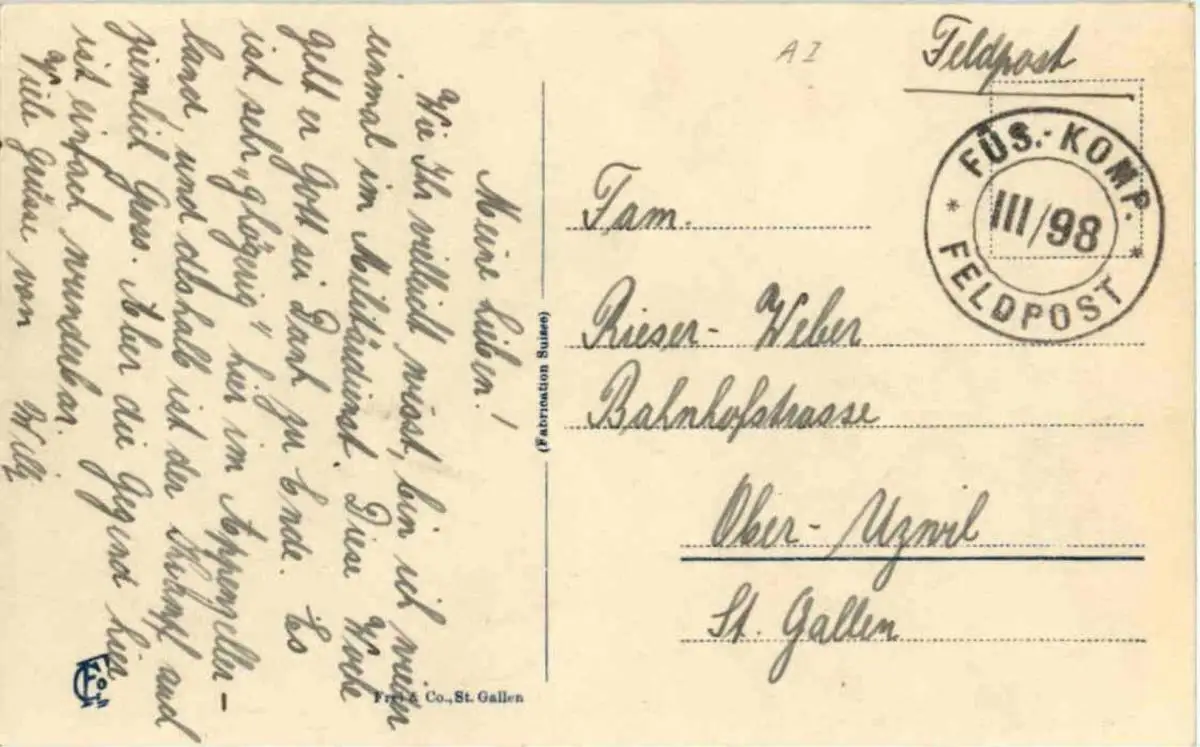 Meine Lieben!
Wie Ihr villeicht wisst, bin ich wieder
einmal im Militärdienst. Diese Woche
geht er Gott sei Dank zu Ende. Es
ist sehr „glögerig“ hier im Appenzeller-
land, und deshalb ist der Krampf auch
ziemlich Gross. Aber die Gegend hier
ist einfach wunderbar.
Viele Grüsse von
Willy
A I
Feldpost
FÜS.-KOMP.
III/98
* FELDPOST *
Fam.
Rieser-Weber
Bahnhofstrasse
Ober-Uzwil
St. Gallen
(Fabrication Suisse)
Frei & Co., St. Gallen